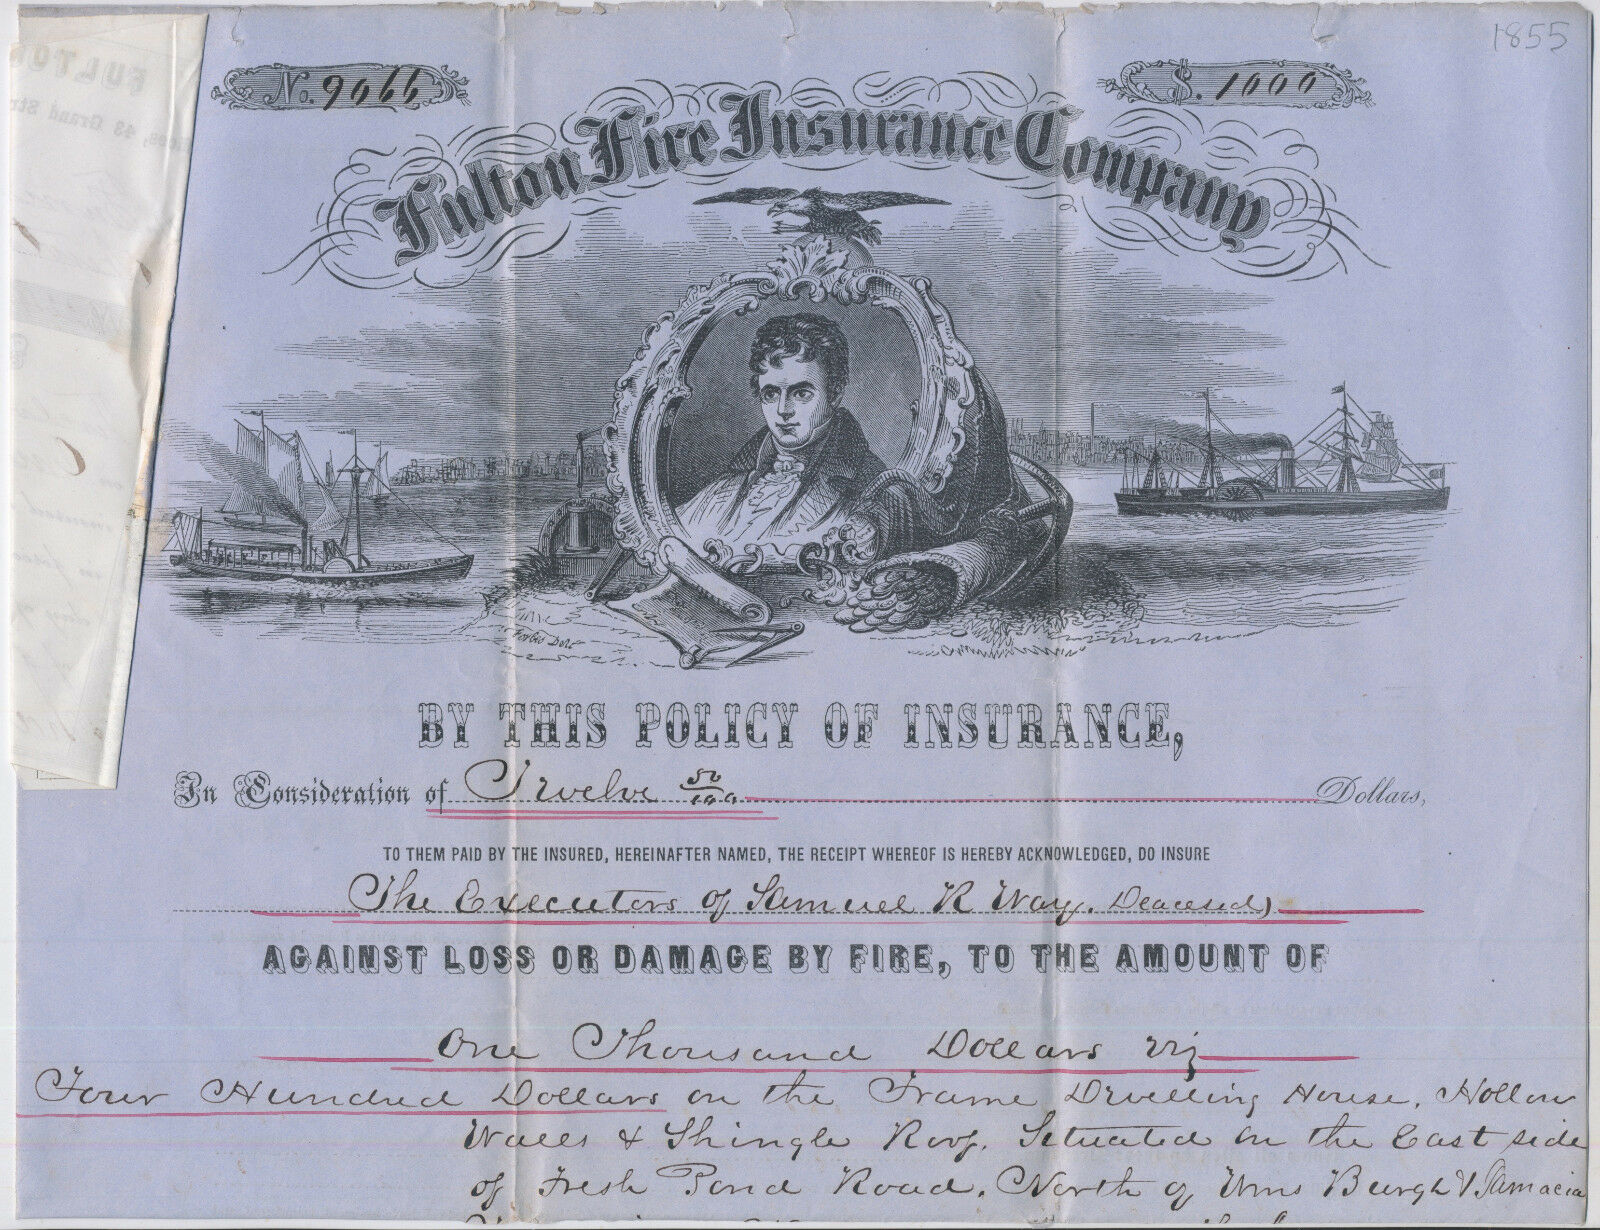 1855
No. 9066
$. 1000
Fulton Fire Insurance Company
FULTON
43 Grand Str
Forbes Del.
BY THIS POLICY OF INSURANCE,
In Consideration of Twelve 50/100 Dollars,
TO THEM PAID BY THE INSURED, HEREINAFTER NAMED, THE RECEIPT WHEREOF IS HEREBY ACKNOWLEDGED, DO INSURE
The Executors of Samuel R Way. Deceased)
AGAINST LOSS OR DAMAGE BY FIRE, TO THE AMOUNT OF
One Thousand Dollars viz
Four Hundred Dollars on the Frame Dwelling House, Hollow
Walls & Shingle Roof. Situated on the East side
of Fresh Pond Road. North of Wms Burgh & Jamacia